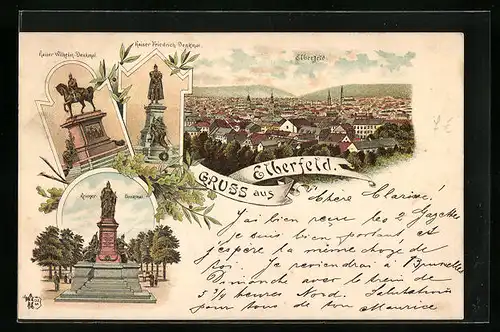 Kaiser Wilhelm-Denkmal.
Kaiser Friedrich-Denkmal.
Elberfeld.
GRUSS aus Elberfeld.
Krieger- Denkmal.
Chère Clarisse!
J'ai bien reçu les 2 Gazettes
je suis bien portant et
j'espère la même chose de
toi. Je reviendrai à Bruxelles
Dimanche avec le train de
5 3/4 heures Nord. Salutations
pour tous de ton Maurice